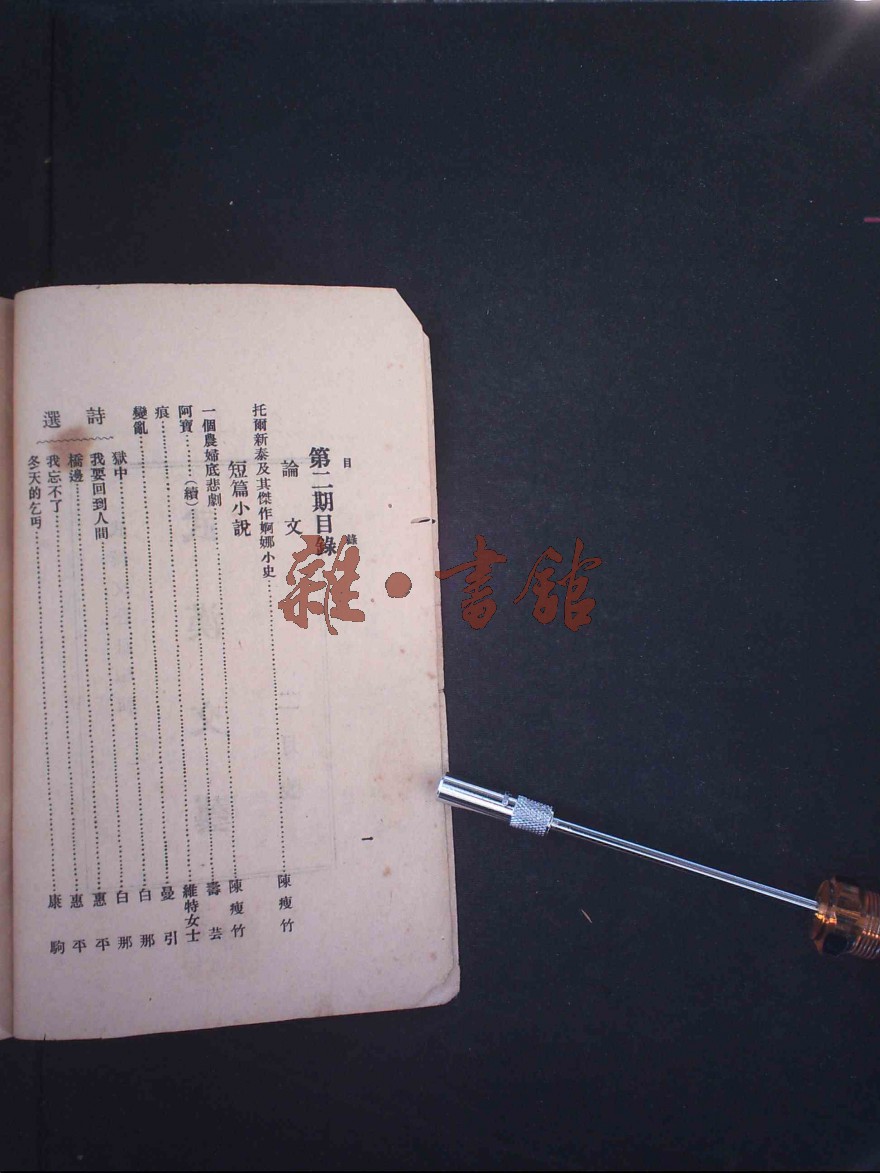 目錄
一
第二期目錄
論文
托爾新泰及其傑作婀娜小史……陳瘦竹
短篇小說
一個農婦底悲劇……陳瘦竹
阿寶……(續)……壽芸
痕……維特女士
變亂……曼引
詩選
獄中……白那
我要回到人間……白那
橋邊……惠平
我忘不了……惠平
冬天的乞丐……康駒
雜·書館